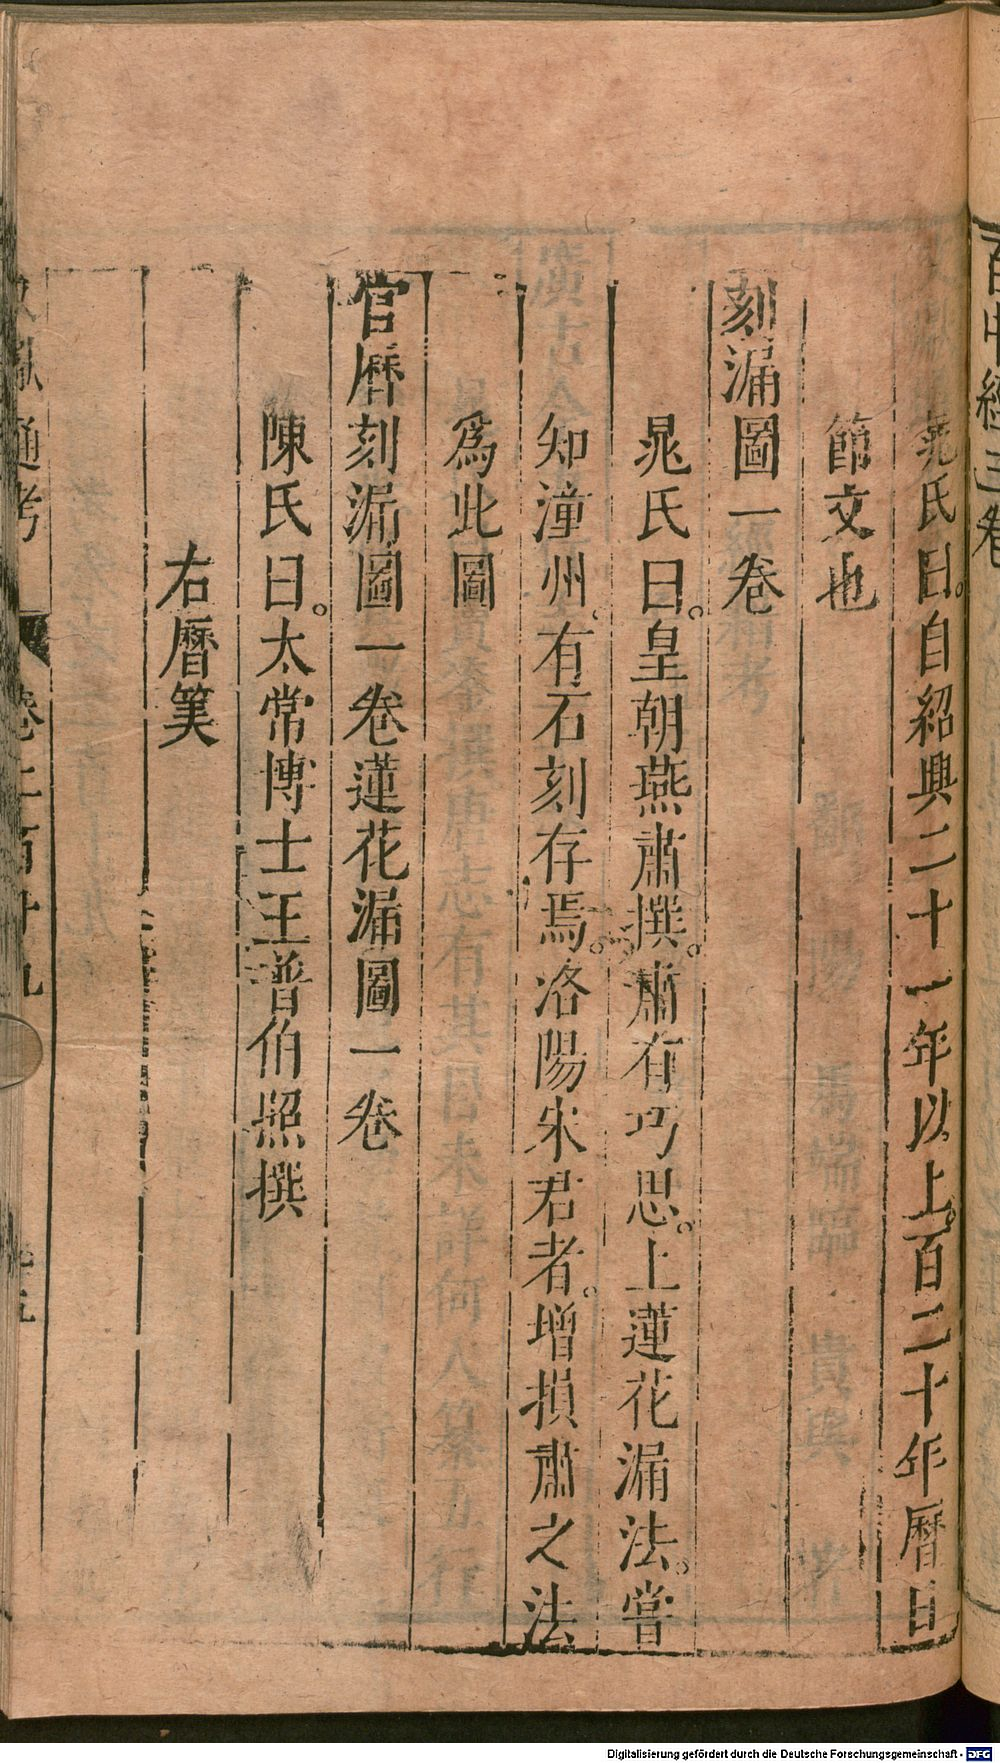 百中經三卷
晁氏曰。自紹興二十一年以上。百二十年曆日
節文也
刻漏圖一卷
晁氏曰。皇朝燕肅撰。肅有巧思。上蓮花漏法。嘗
知潼州。有石刻存焉。洛陽宋君者。增損肅之法
爲此圖
官曆刻漏圖一卷蓮花漏圖一卷
陳氏曰。太常博士王普伯照撰
右曆筭
文獻通考 卷二百十九
Digitalisierung gefördert durch die Deutsche Forschungsgemeinschaft - DFG